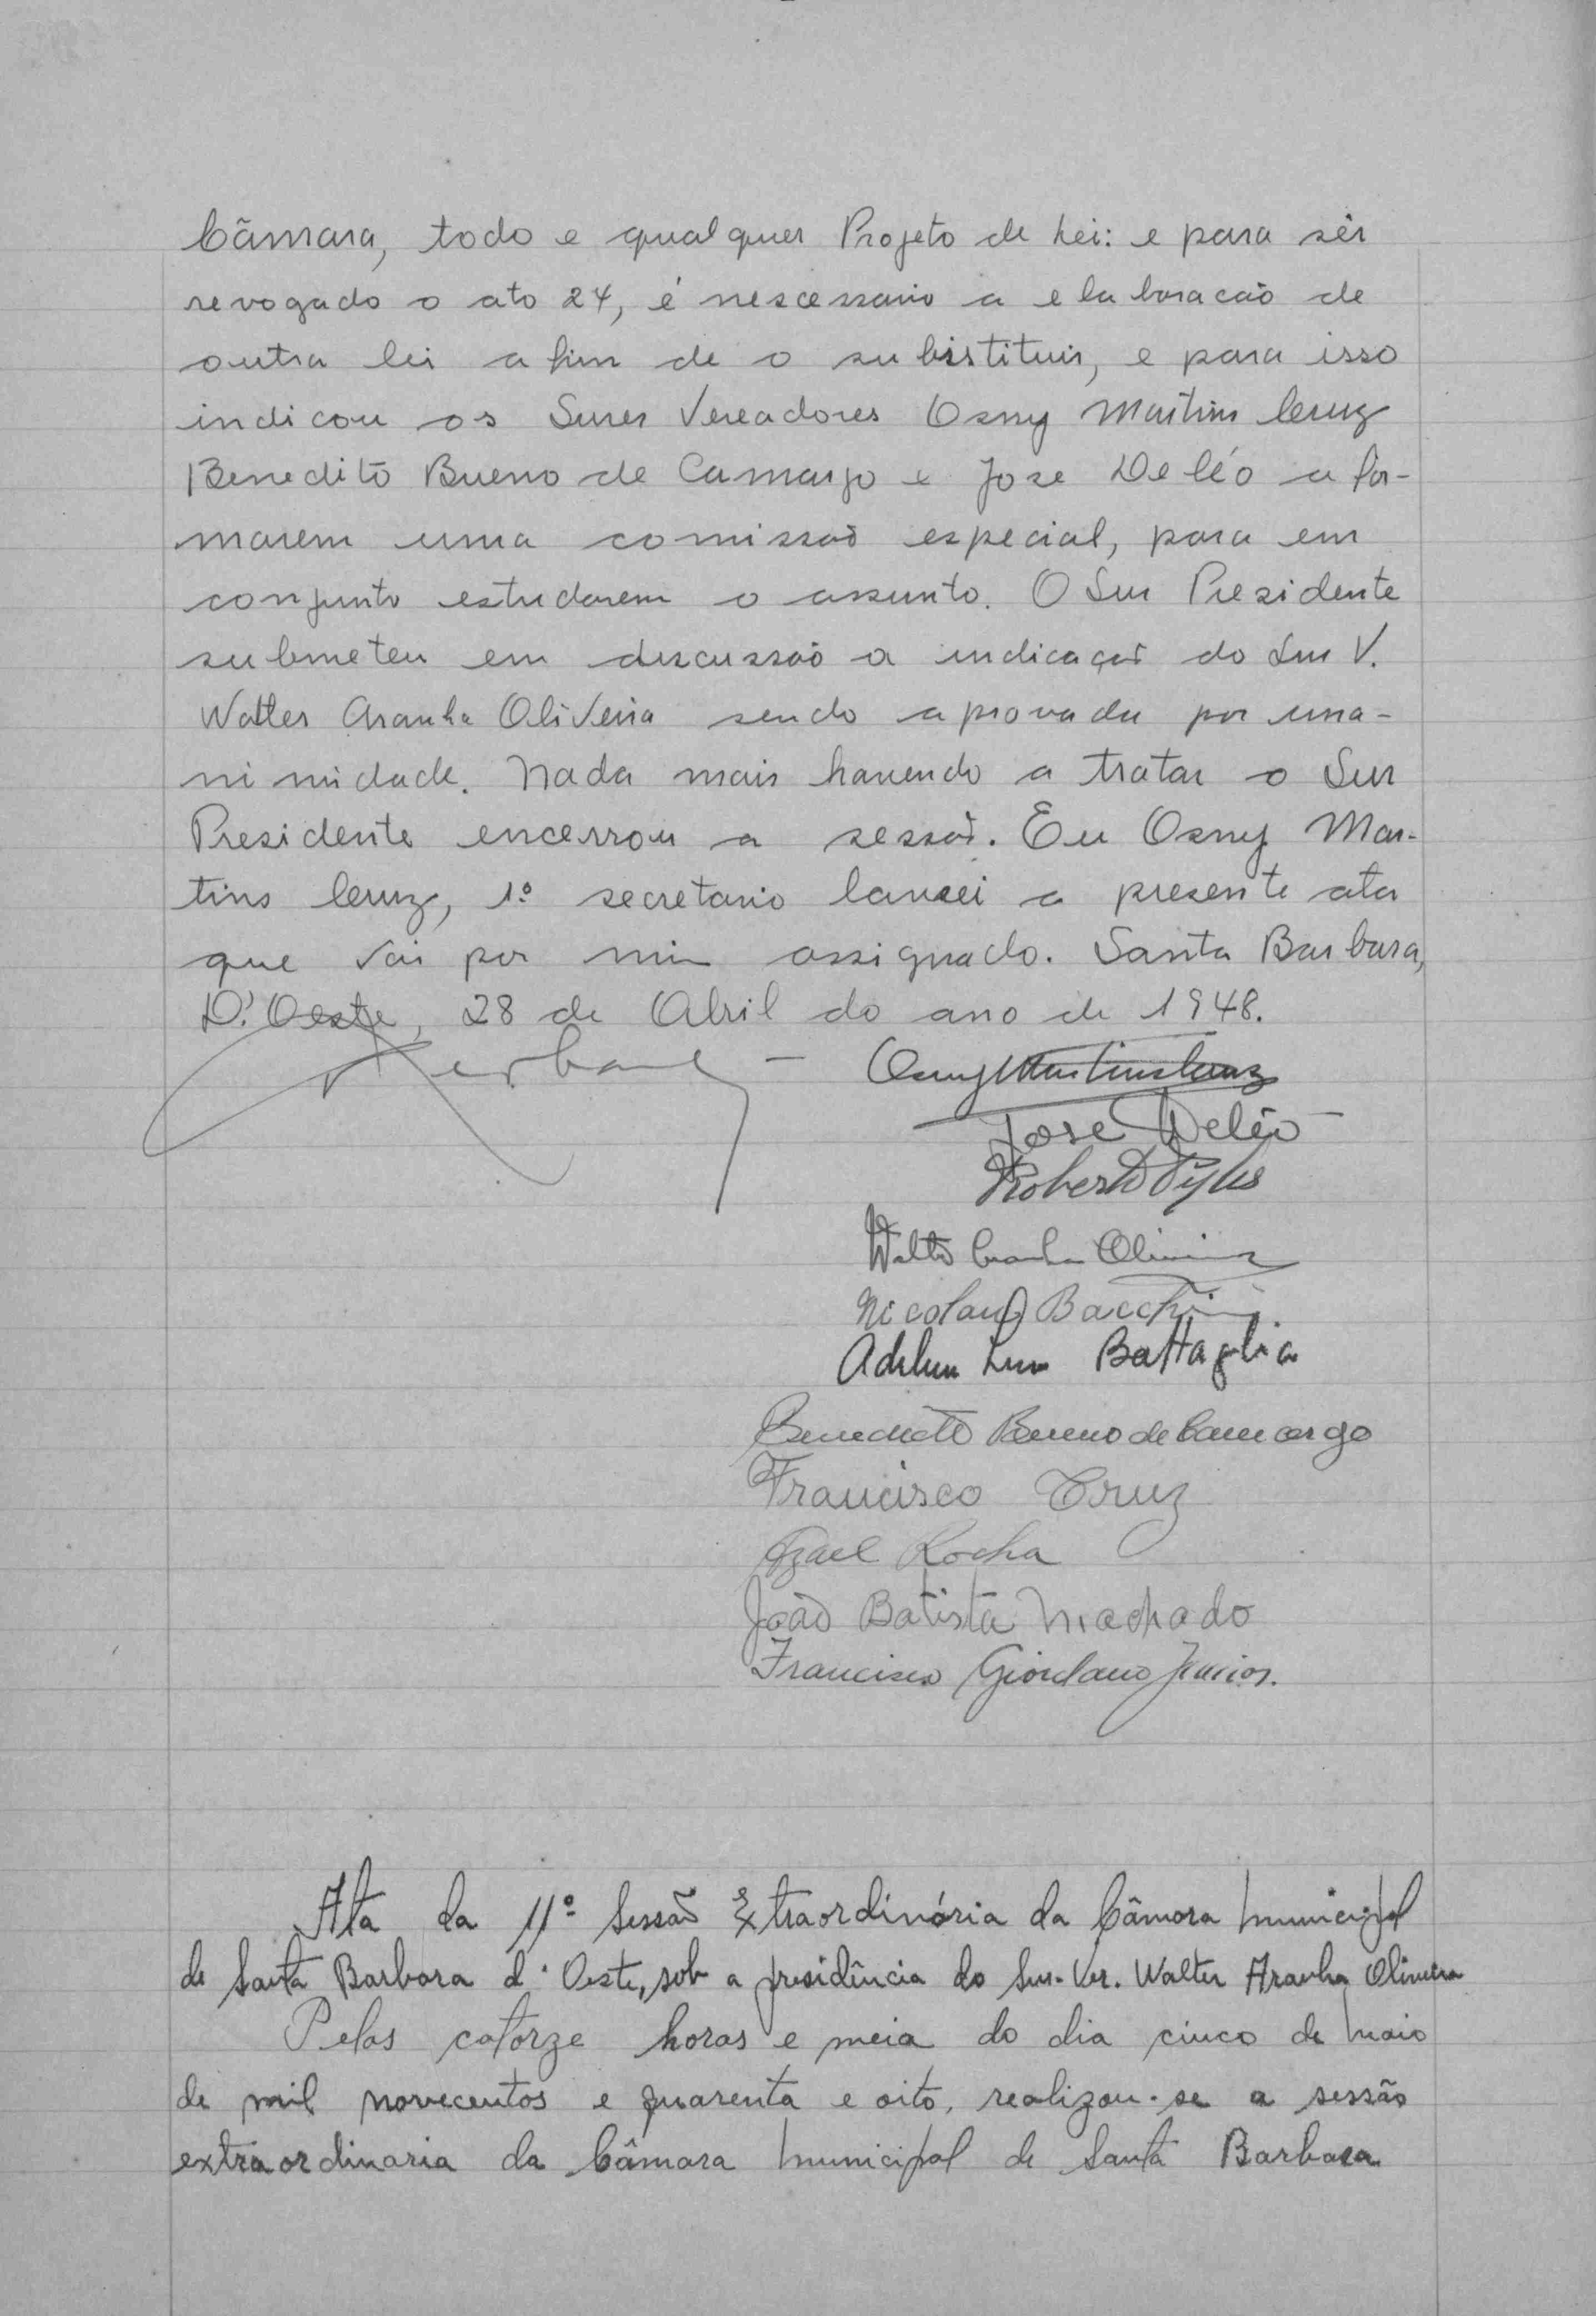 Câmara, todo e qualquer Projeto de Lei: e para sêr
revogado o ato 24, é nescessario a elaboracão de
outra lei afim de o subistituir, e para isso
indicou os Snres Vereadores Osny Martins Cruz
Benedito Bueno de Camargo e Jose Deléo a for-
marem uma comissão especial, para em
conjunto estudarem o assunto. O Snr Presidente
submeteu em discussão a indicação do Snr V.
Walter Aranha Oliveira sendo aprovada por una-
nimidade. Nada mais havendo a tratar o Snr
Presidente encerrou a sessão. Eu Osny Mar-
tins Cruz, 1º secretario lancei a presente ata
que vai por mim assignado. Santa Barbara,
D'Oeste, 28 de Abril do ano de 1948.
Osny Martins Cruz
Jose Deléo
Roberto Pyles
Walter Aranha Oliveira
Nicolau Bacchin
Battaglia
Benedicto Bueno de Camargo
Francisco Cruz
Azael Rocha
João Batista Machado
Francisco Giordano Junior.
Ata da 11º Sessão Extraordinária da Câmara Municipal
de Santa Barbara d'Oeste, sob a presidência do Snr. Ver. Walter Aranha Oliveira
Pelas catorze horas e meia do dia cinco de Maio
de mil novecentos e quarenta e oito, realizou-se a sessão
extraordinaria da Câmara Municipal de Santa Barbara